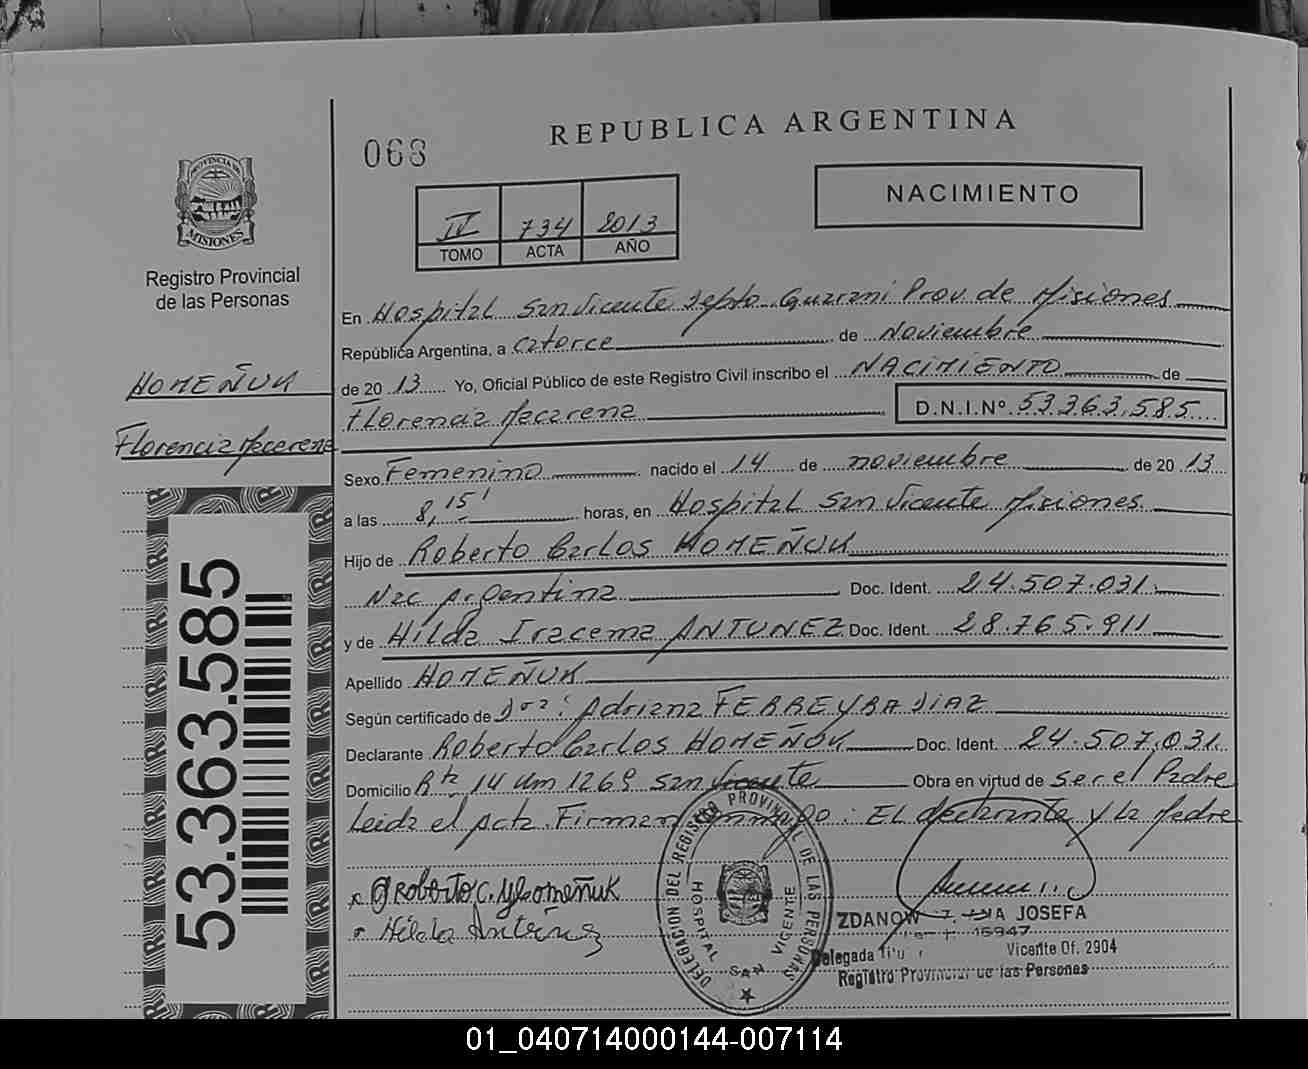 REPUBLICA ARGENTINA
068
NACIMIENTO
IV 734 2013
TOMO ACTA AÑO
PROVINCIA DE MISIONES
Registro Provincial
de las Personas
HOMEÑUK
Florencia Macarena
En Hospital San Vicente Depto. Guarani Prov. de Misiones
República Argentina, a catorce de Noviembre
de 20 13 Yo, Oficial Público de este Registro Civil inscribo el NACIMIENTO de
Florencia Macarena D.N.I.Nº. 53.363.585
Sexo Femenino nacido el 14 de noviembre de 20 13
a las 8,15' horas, en Hospital San Vicente Misiones
Hijo de Roberto Carlos HOMEÑUK
Nac Argentina Doc. Ident. 24.507.031
y de Hilda Iracema ANTUNEZ Doc. Ident. 28.765.911
Apellido HOMEÑUK
Según certificado de Dra: Adriana FERREYRA DIAZ
Declarante Roberto Carlos HOMEÑUK Doc. Ident. 24.507.031
Domicilio Rta 14 Km 1269 San Vicente Obra en virtud de ser el Padre
Leida el Acta Firman conmigo: EL declarante y la Madre
Roberto C. Homeñuk
Hilda Antúnez
DELEGACION DEL REGISTRO PROVINCIAL DE LAS PERSONAS
HOSPITAL SAN VICENTE
ZDANOW JOSEFA
15947
Delegada Vicente Of. 2904
Registro Provincial de las Personas
53.363.585
01_040714000144-007114